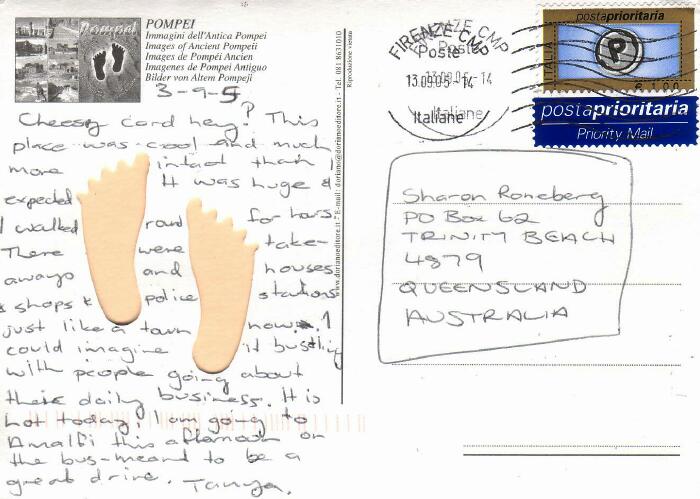 Pompei
POMPEI
Immagini dell'Antica Pompei
Images of Ancient Pompeii
Images de Pompéi Ancien
Imagenes de Pompei Antiguo
Bilder von Altem Pompeji
3-9-5
Cheesy card hey? This
place was cool and much
more intact than I
expected It was huge &
I walked round for hours.
There were take-
aways and houses
& shops & police stations
just like a town now. I
could imagine it bustling
with people going about
their daily business. It is
hot today. I am going to
Amalfi this afternoon on
the bus-meant to be a
great drive. Tanya.
www.dorianoeditore.it - E-mail: doriano@dorianoeditore.it - Tel. 081 8631010
Riproduzione vietata
FIRENZE CMP
Poste
13.09.05 - 14
Italiane
postaprioritaria
ITALIA
P
€ 1,00
postaprioritaria
Priority Mail
Sharon Roneberg
PO Box 62
TRINITY BEACH
4879
QUEENSLAND
AUSTRALIA